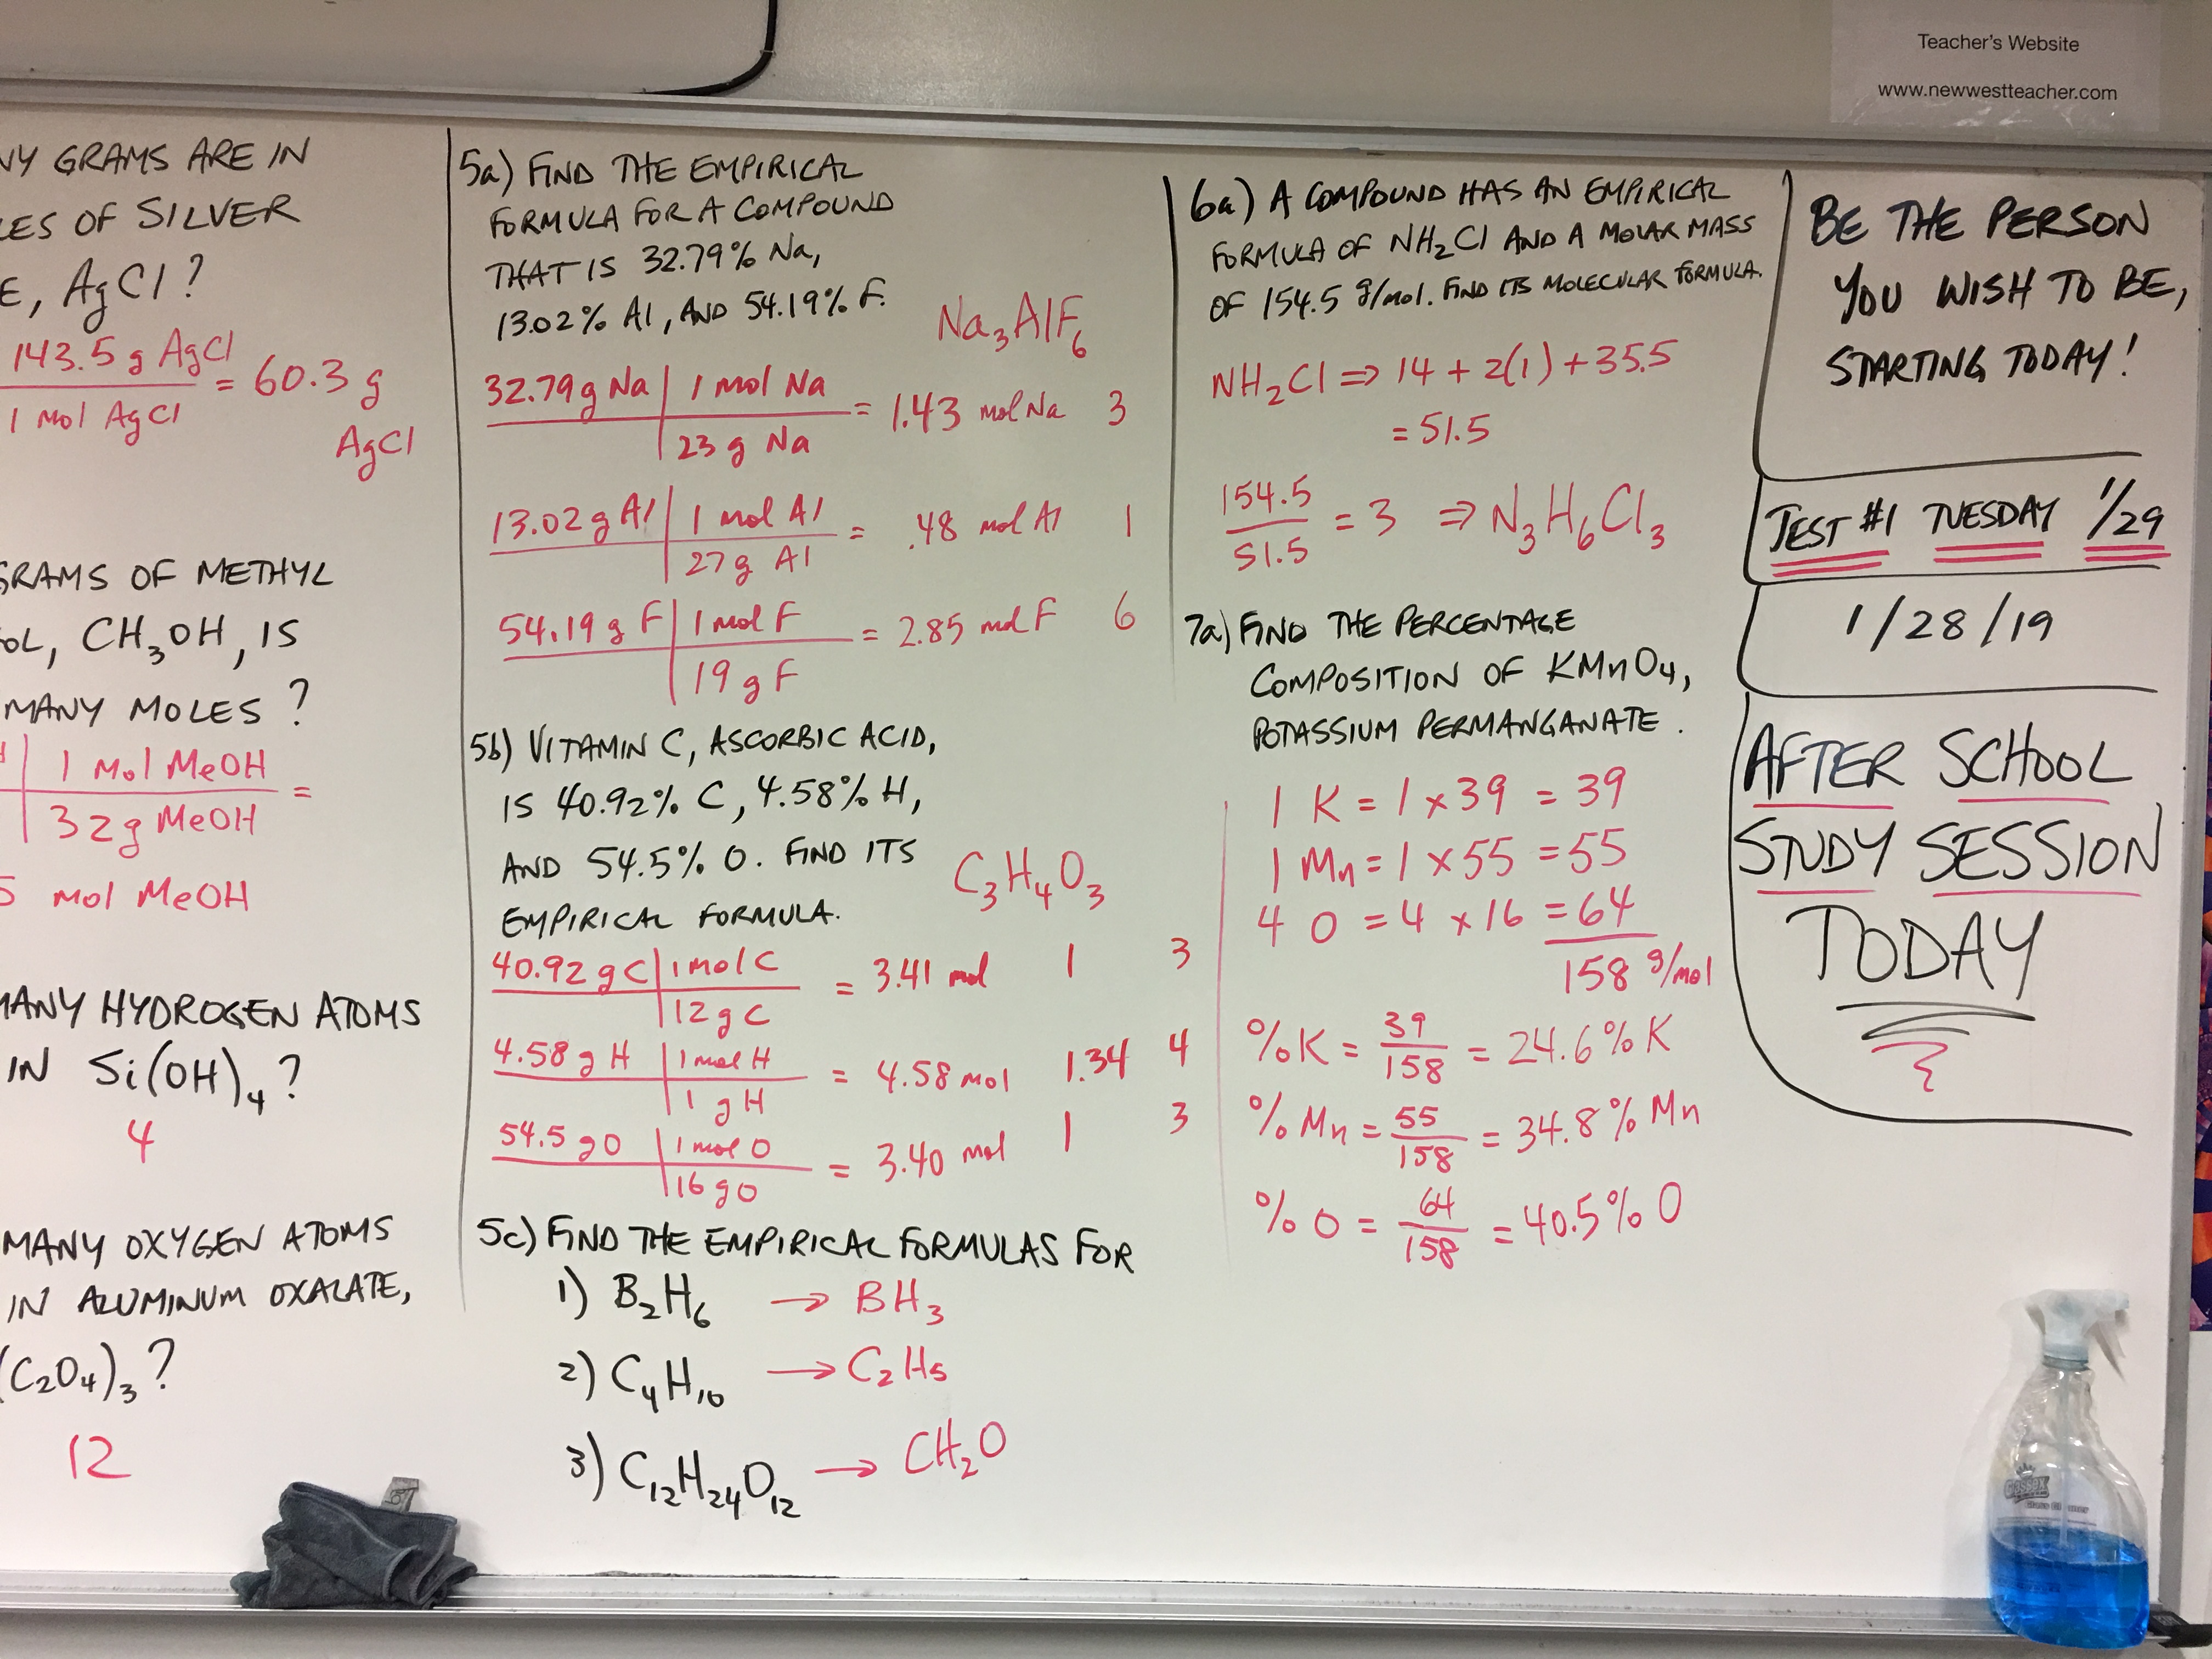 Teacher's Website
www.newwestteacher.com
NY GRAMS ARE IN
LES OF SILVER
E, AgCl?
143.5 g AgCl
1 mol AgCl
= 60.3 g
AgCl
GRAMS OF METHYL
OL, CH₃OH, IS
MANY MOLES?
1 mol MeOH
32 g MeOH
=
5 mol MeOH
MANY HYDROGEN ATOMS
IN Si(OH)₄?
4
MANY OXYGEN ATOMS
IN ALUMINUM OXALATE,
(C₂O₄)₃?
12
5a) FIND THE EMPIRICAL
FORMULA FOR A COMPOUND
THAT IS 32.79% Na,
13.02% Al, AND 54.19% F.
Na₃AlF₆
32.79 g Na | 1 mol Na
23 g Na
= 1.43 mol Na 3
13.02 g Al | 1 mol Al
27 g Al
= .48 mol Al 1
54.19 g F | 1 mol F
19 g F
= 2.85 mol F 6
5b) VITAMIN C, ASCORBIC ACID,
IS 40.92% C, 4.58% H,
AND 54.5% O. FIND ITS
EMPIRICAL FORMULA.
C₃H₄O₃
40.92 g C | 1 mol C
12 g C
= 3.41 mol 1 3
4.58 g H | 1 mol H
1 g H
= 4.58 mol 1.34 4
54.5 g O | 1 mol O
16 g O
= 3.40 mol 1 3
5c) FIND THE EMPIRICAL FORMULAS FOR
1) B₂H₆ → BH₃
2) C₄H₁₀ → C₂H₅
3) C₁₂H₂₄O₁₂ → CH₂O
6a) A COMPOUND HAS AN EMPIRICAL
FORMULA OF NH₂Cl AND A MOLAR MASS
OF 154.5 g/mol. FIND ITS MOLECULAR FORMULA.
NH₂Cl ⇒ 14 + 2(1) + 35.5
= 51.5
154.5
51.5
= 3 ⇒ N₃H₆Cl₃
7a) FIND THE PERCENTAGE
COMPOSITION OF KMnO₄,
POTASSIUM PERMANGANATE.
1 K = 1 × 39 = 39
1 Mn = 1 × 55 = 55
4 O = 4 × 16 = 64
158 g/mol
%K = 39/158 = 24.6% K
%Mn = 55/158 = 34.8% Mn
%O = 64/158 = 40.5% O
BE THE PERSON
YOU WISH TO BE,
STARTING TODAY!
TEST #1 TUESDAY 1/29
1/28/19
AFTER SCHOOL
STUDY SESSION
TODAY
Glassex